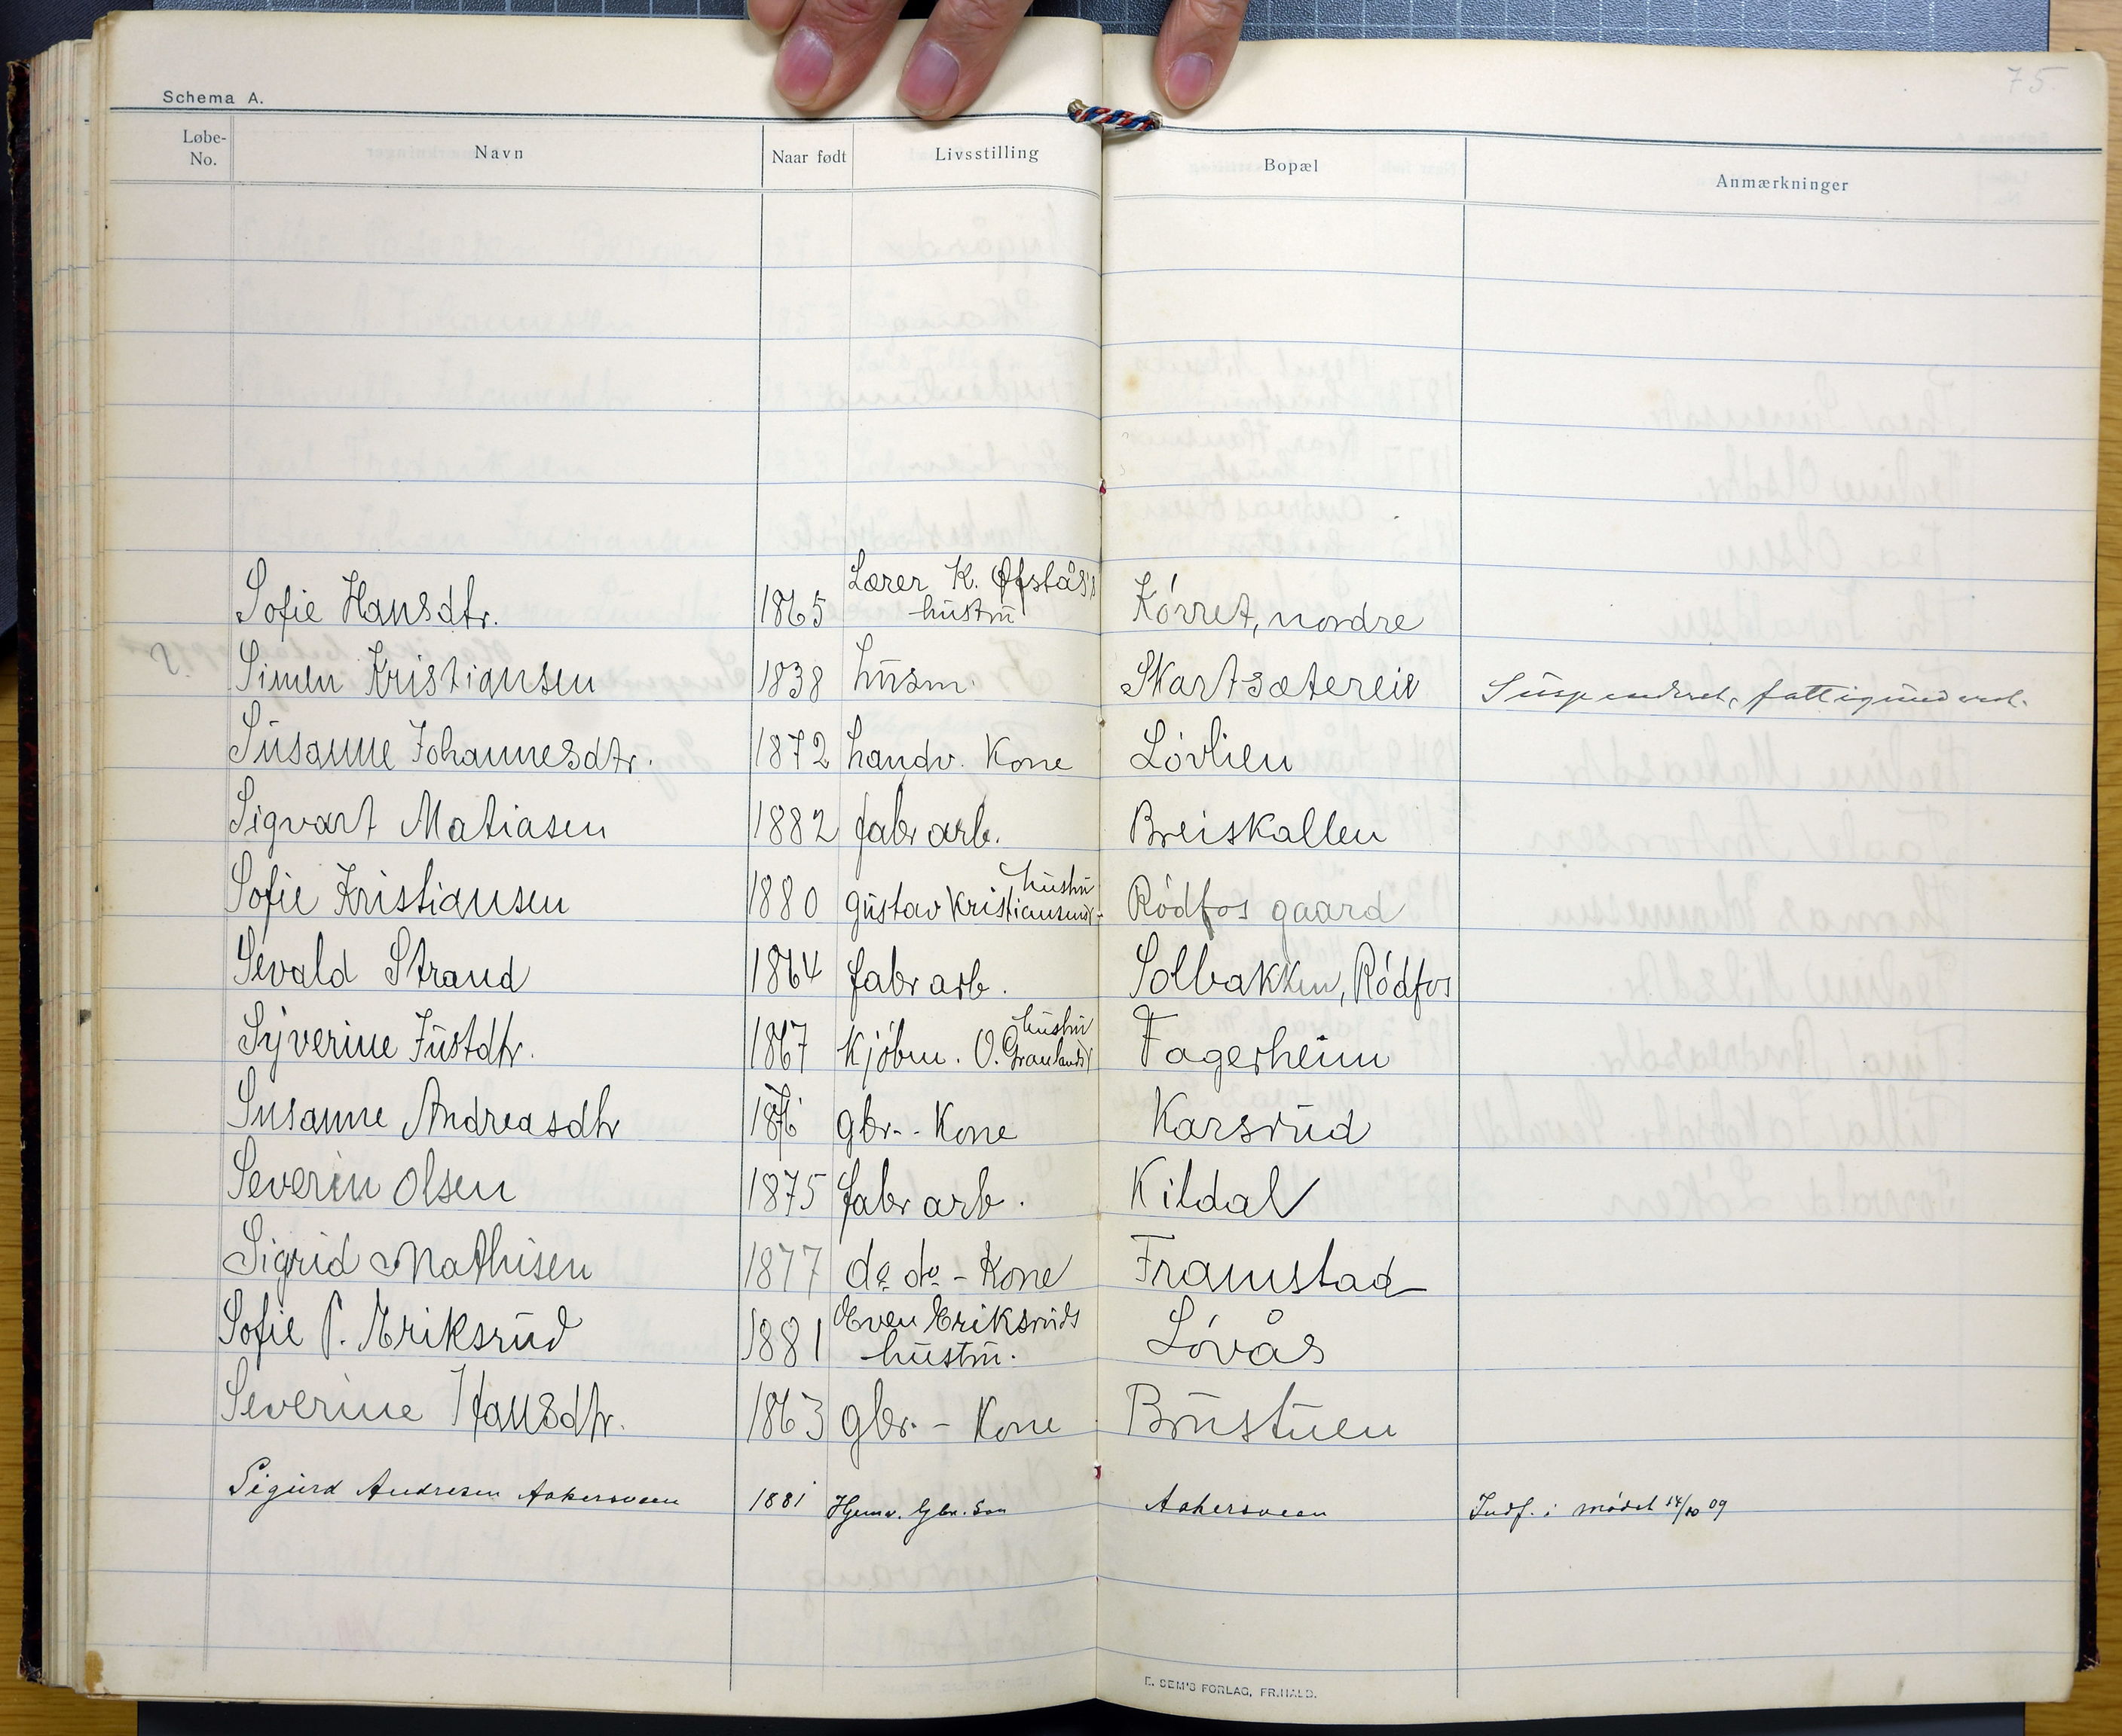 75
Schema A.
Løbe-No. Navn Naar født Livsstilling Bopæl Anmærkninger
Sofie Hansdtr. 1865 Lærer K. Øfstås's hustru Kórret, nordre
Simen Kristiansen 1838 husm. Skartsætereie Suspenderet, fattigunderst.
Susanne Johannesdtr. 1872 handv. Kone Lóvlien
Sigvart Matiasen 1882 fabr arb. Breiskallen
Sofie Kristiansen 1880 Gustav Kristiansens hustru Ródfos gaard
Sevald Strand 1864 fabr arb. Solbakken, Ródfos
Syverine Justdtr. 1867 Kjóbm. O. Granlunds hustru Fagerheim
Susanne Andreasdtr gbr. - Kone Karsrud
Severin Olsen 1875 fabr arb. Kildal
Sigrid Mathisen 1877 do do - Kone Framstad
Sofie P. Eriksrud 1881 Even Eriksruds hustru. Lóvås
Severine Hansdtr. 1863 gbr. - Kone Brustuen
Sigurd Andresen Aakersveen 1881 Hjemv. Gbr. Søn Aakersveen Indf. i módet 14/10 09
E. SEM'S FORLAG, FR.HALD.